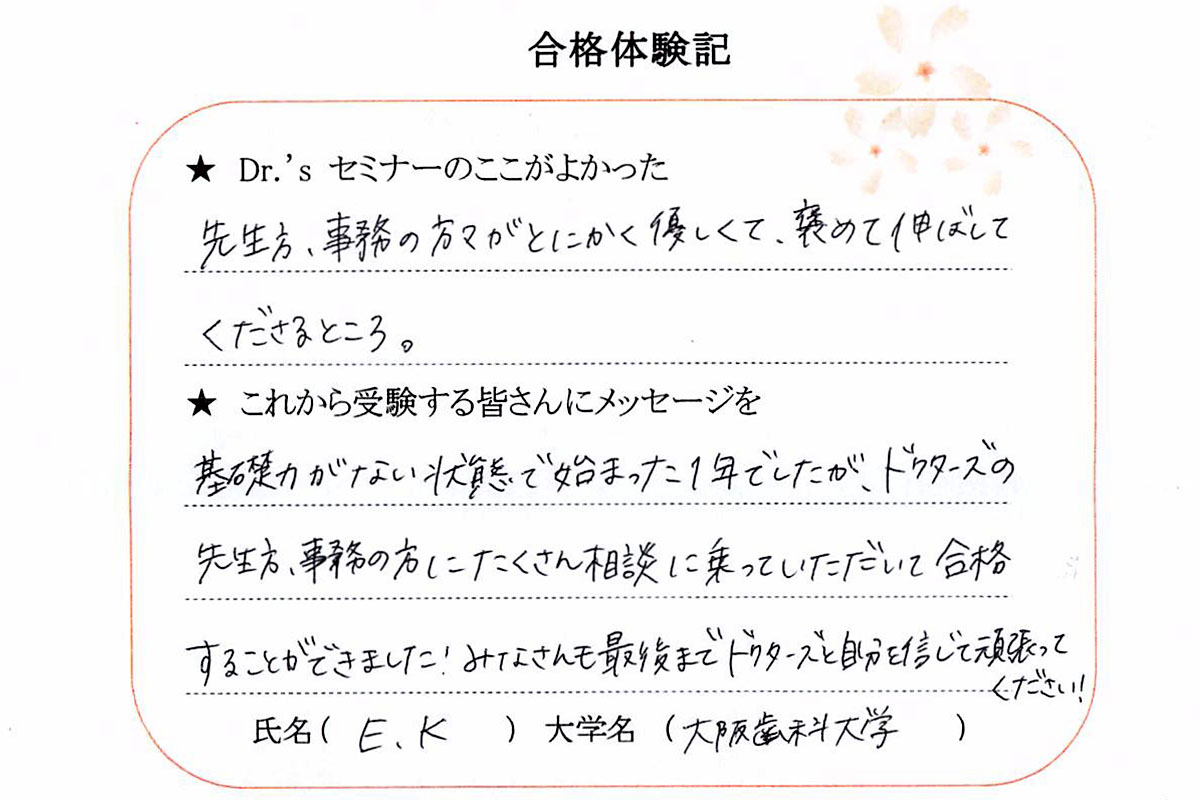 合格体験記
★ Dr.’s セミナーのここがよかった
先生方、事務の方々がとにかく優しくて、褒めて伸ばして
くださるところ。
★ これから受験する皆さんにメッセージを
基礎力がない状態で始まった1年でしたが、ドクターズの
先生方、事務の方にたくさん相談に乗っていただいて合格
することができました！みなさんも最後までドクターズと自分を信じて頑張って
ください！
氏名（ E、K ） 大学名 （大阪歯科大学 ）